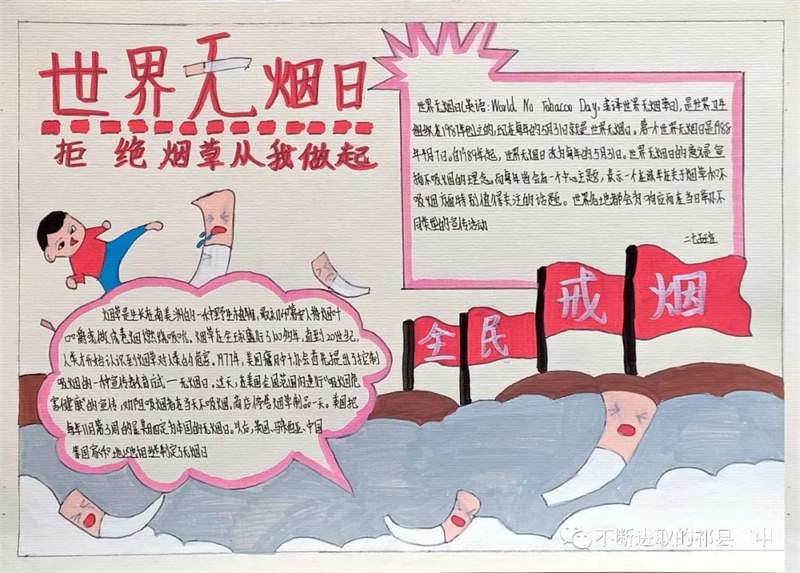 世界无烟日
拒绝烟草从我做起
世界无烟日(英语:World No Tobacco Day,或译世界无烟草日),是世界卫生
组织在1987年创立的,现在每年的5月31日就是世界无烟日。第一个世界无烟日是1988
年4月7日。自1989年起,世界无烟日改为每年的5月31日。世界无烟日的意义是宣
扬不吸烟的理念。而每年皆会有一个中心主题,表示一个在该年在关于烟草和不
吸烟方面特别值得关注的话题。世界各地都会为响应而在当日举办不
同类型的宣传活动
二十五班
烟草是生长在南美洲的一种野生植物,最初
人类才开始认识到烟草对人类的危害。月77年,美国癌症协会首先提出了控制
吸烟的一种宣传教育 — 无烟日。这天,在美国全国范围内进行“吸烟危
害健康”的宣传,劝阻吸烟者在当天不吸烟,商店停售烟草制品一天。美国把
每年11月第3周的星期四定为本国的无烟日。以后,英国、马来西亚、中国
制定了无烟日
全民戒烟
不断进取的祁县二中